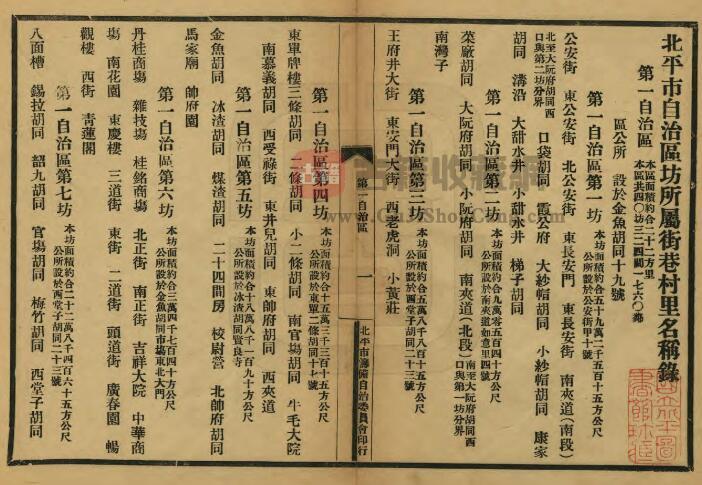 北平市自治區坊所屬街巷村里名稱錄
第一自治區 本區面積約合二十二方里
本區共四〇坊三二四閭一七六〇鄰
區公所 設於金魚胡同十九號
第一自治區第一坊 本坊面積約合五十九萬二千五百十五方公尺
公所設於公安街甲十號
公安街 東公安街 北公安街 東長安門 東長安街 南夾道(南段)
北至大阮府胡同西
口與第二坊分界 口袋胡同 霞公府 大紗帽胡同 小紗帽胡同 康家
胡同 溝沿 大甜水井 小甜水井 梯子胡同
第一自治區第二坊 本坊面積約合九萬零五百四十方公尺
公所設於南夾道如意里四號
菜廠胡同 大阮府胡同 小阮府胡同 南夾道(北段) 南至大阮府胡同西
口與第一坊分界
南灣子
第一自治區第三坊 本坊面積約合五萬八千八百八十五方公尺
公所設於西堂子胡同二十三號
王府井大街 東安門大街 西老虎洞 小黃莊
第一自治區
一
北平市籌備自治委員會印行
第一自治區第四坊 本坊面積約合十五萬三千三百五十五方公尺
公所設於東單二條胡同十七號
東單牌樓三條胡同 二條胡同 小二條胡同 南官場胡同 牛毛大院
南慕義胡同 西受祿街 東井兒胡同 東帥府胡同 西夾道
第一自治區第五坊 本坊面積約合十八萬八千一百九十方公尺
公所設於冰渣胡同賢良寺
金魚胡同 冰渣胡同 煤渣胡同 二十四間房 校尉營 北帥府胡同
馬家廟 帥府園
第一自治區第六坊 本坊面積約合三萬四千七百四十方公尺
公所設於金魚胡同市場東北大門
丹桂商場 雜技場 桂銘商場 北正街 南正街 吉祥大院 中華商
場 南花園 東慶樓 三道街 東街 二道街 頭道街 廣春園 暢
觀樓 西街 青蓮閣
第一自治區第七坊 本坊面積約合二十二萬八千四百六十五方公尺
公所設於西堂子胡同二十三號
八面槽 錫拉胡同 韶九胡同 官場胡同 梅竹胡同 西堂子胡同
古籍
www.GujiShuCang.com